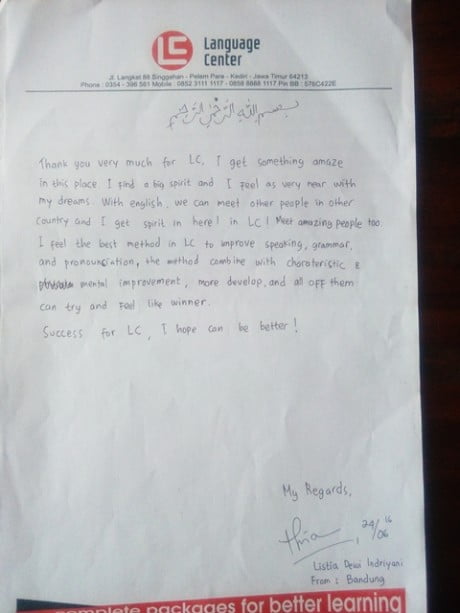 LC
Language
Center
Jl. Langkat 88 Singgahan - Pelem Pare - Kediri - Jawa Timur 64213
Phone : 0354 - 396 561 Mobile : 0852 3111 1117 - 0858 8888 1117 Pin BB : 576C422E
بسم الله الرحمن الرحيم
Thank you very much for LC, I get something amaze
in this place. I find a big spirit and I feel as very near with
my dreams. With english, we can meet other people in other
country and I get spirit in here! in LC! Meet amazing people too.
I feel the best method in LC to improve speaking, grammar,
and pronounciation, the method combine with charateristic &
mental improvement, more develop, and all off them
can try and feel like winner.
Success for LC, I hope can be better!
My Regards,
24/06 16
Listia Dewi Indriyani
From : Bandung
complete packages for better learning